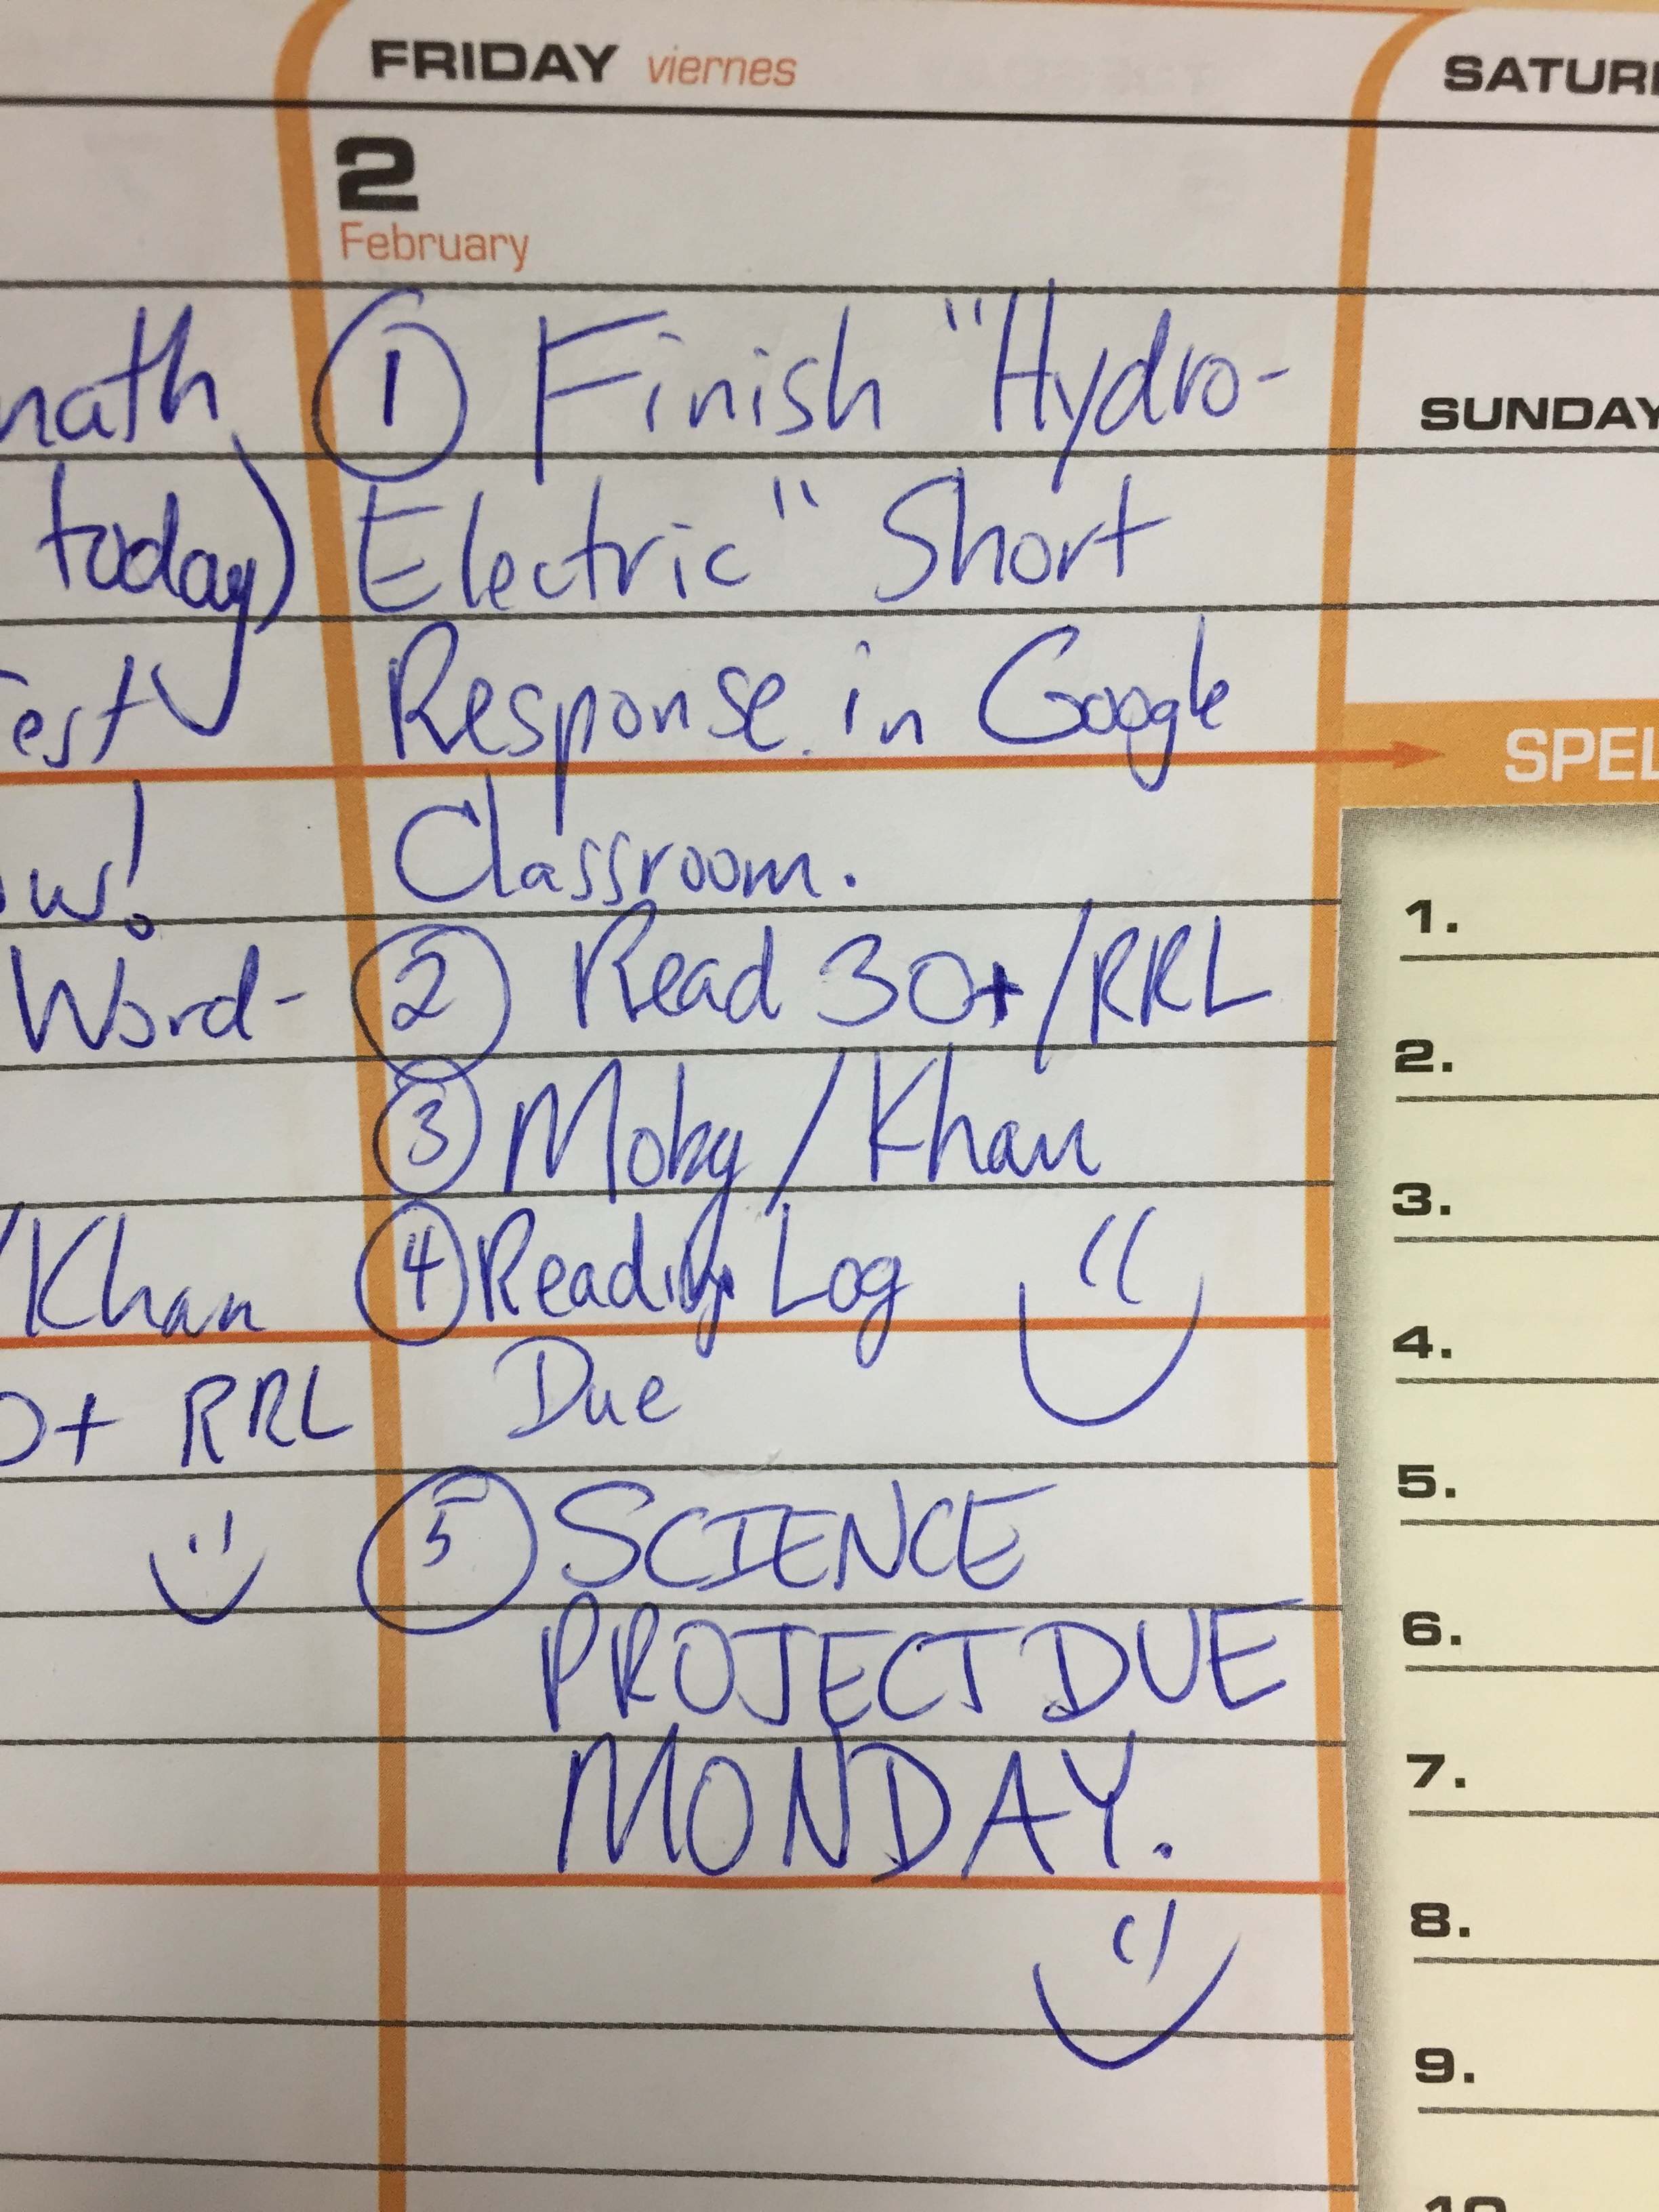 FRIDAY viernes
2
February
① Finish "Hydro-
Electric" Short
Response in Google
Classroom.
② Read 30+/RRL
③ Moby/Khan
④ Reading Log
Due
⑤ SCIENCE
PROJECT DUE
MONDAY.
today)
Word-
/Khan
+ RRL
SUNDAY
1.
2.
3.
4.
5.
6.
7.
8.
9.